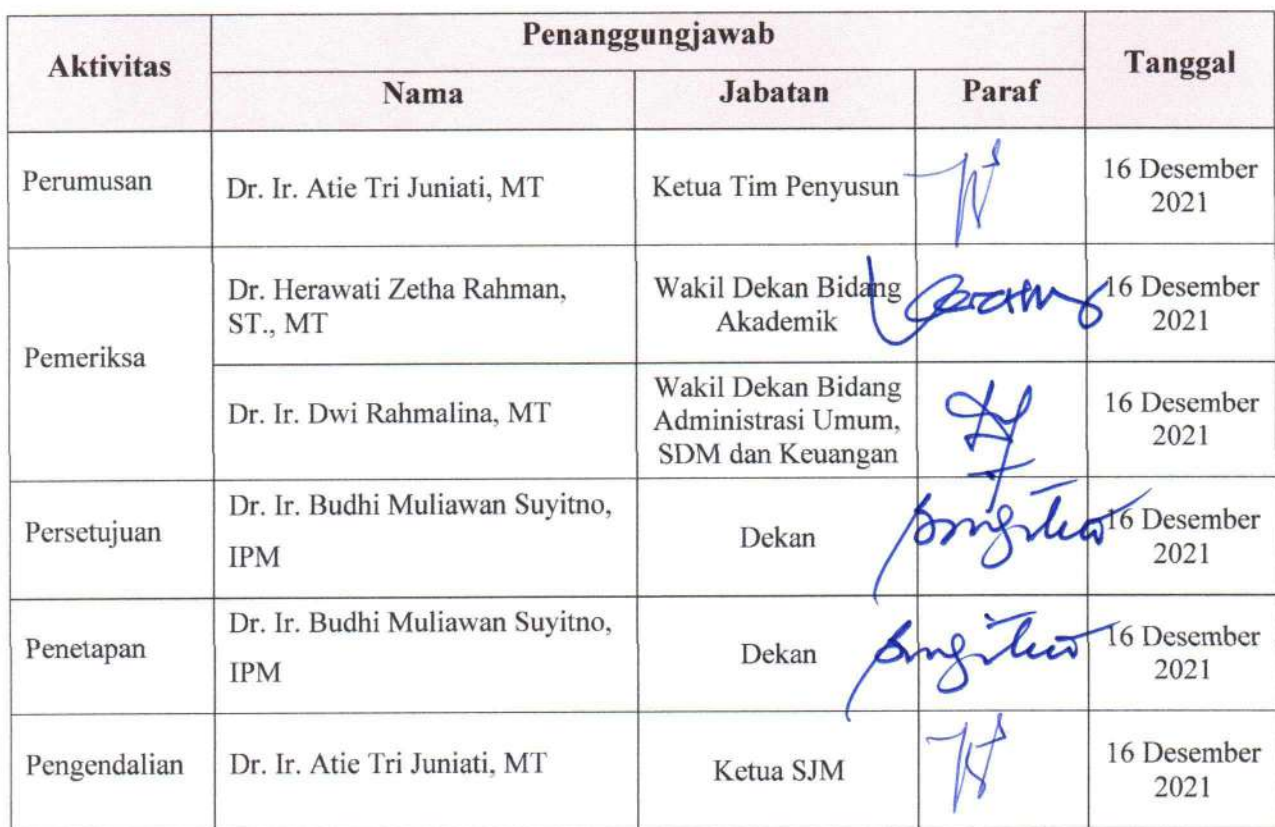 Aktivitas
Penanggungjawab
Tanggal
Nama
Jabatan
Paraf
Perumusan
Dr. Ir. Atie Tri Juniati, MT
Ketua Tim Penyusun
16 Desember
2021
Pemeriksa
Dr. Herawati Zetha Rahman,
ST., MT
Wakil Dekan Bidang
Akademik
16 Desember
2021
Dr. Ir. Dwi Rahmalina, MT
Wakil Dekan Bidang
Administrasi Umum,
SDM dan Keuangan
16 Desember
2021
Persetujuan
Dr. Ir. Budhi Muliawan Suyitno,
IPM
Dekan
16 Desember
2021
Penetapan
Dr. Ir. Budhi Muliawan Suyitno,
IPM
Dekan
16 Desember
2021
Pengendalian
Dr. Ir. Atie Tri Juniati, MT
Ketua SJM
16 Desember
2021